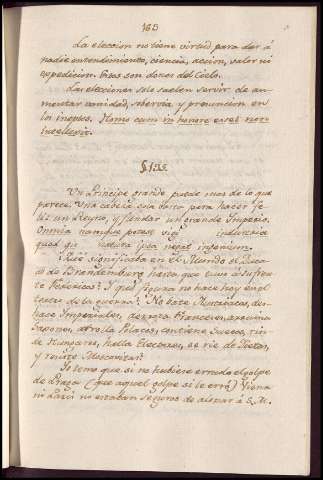 163
La eleccion no tiene virtud para dar á
nadie entendimiento, ciencia, accion, valor ni
expedicion. Estos son dones del Cielo.
Las elecciones solo suelen servir de au-
mentar vanidad, sobervia y presuncion en
los ineptos. Homo cum in honore esset non
intellexit.
§ 135.
Un Principe grande puede mas de lo que
parece. Una cabeza sola basta para hacer fe-
liz un Reyno, y fundar un grande Imperio.
Omnia namque potest industria
quod natura ipsa negat ingenium.
¿Qué significaba en el Mundo el Duca-
do de Brandemburg hasta que tuvo á su fren-
te Federicos? ¿Y qué figura no hace hoy en el
teatro de la guerra? No bate Austriacos, des-
hace Imperiales, derrota Franceses, arruina
Saxones, atrolla Polacos, contiene Suecos, rin-
de Hungaros, huella Electores, se rie de Dietas,
y resiste Moscovitas?
Yo temo que si no hubiese errado el golpe
de Praga (que aquel golpe si le erró) Viena
ni París no estaban seguros de alojar á S. M.